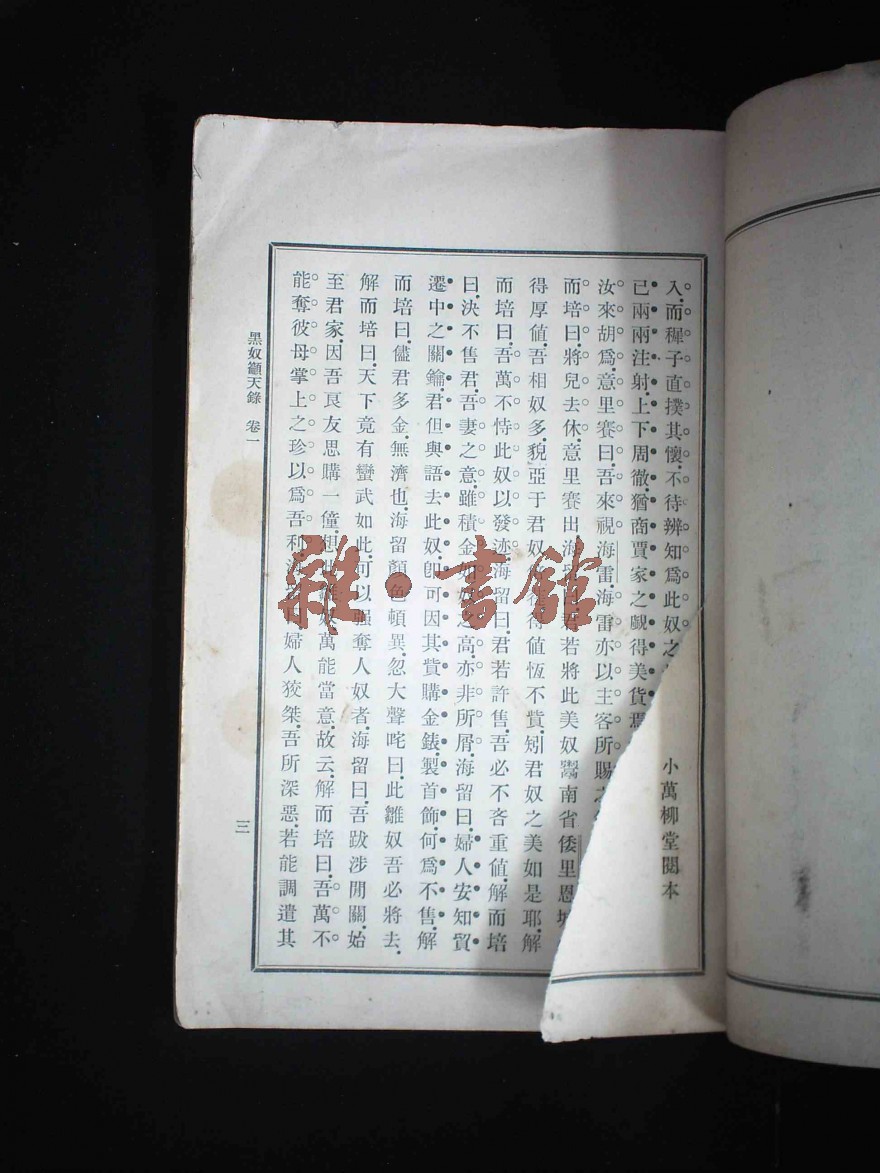 入而穉子直撲其懷不待辨知爲此奴之
已兩兩注射上下周徹猶商賈家之覷得美貨焉
汝來胡爲意里賽曰吾來視海雷海雷亦以主客所賜之
而培曰將兒去休意里賽出海留曰吾若將此美奴鬻南省倭里恩
得厚値吾相奴多貌亞于君奴 往得値恆不貲矧君奴之美如是耶解
而培曰吾萬不恃此奴以發迹海留曰君若許售吾必不吝重値解而培
曰決不售君吾妻之意雖積金如奴之高亦非所屑海留曰婦人安知貿
遷中之關鑰君但與語去此奴卽可因其貲購金錶製首飾何爲不售解
而培曰儘君多金無濟也海留顏色頓異忽大聲咤曰此雛奴吾必將去
解而培曰天下竟有蠻武如此可以強奪人奴者海留曰吾跋涉閒關始
至君家因吾良友思購一僮想此雛奴萬能當意故云解而培曰吾萬不
能奪彼母掌上之珍以爲吾利海留曰婦人狡桀吾所深惡若能調遣其
小萬柳堂閱本
黑奴籲天錄 卷一
三
雜·書館